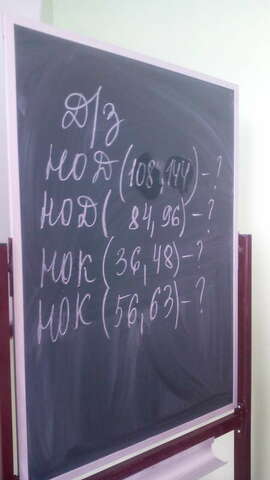 Д/з
НОД (108,144) - ?
НОД ( 84, 96) - ?
НОК (36, 48) - ?
НОК (56, 63) - ?